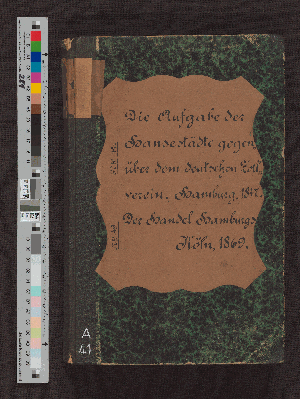 Die Aufgabe der
Hansestädte gegen
über dem deutschen Zoll
verein. Hamburg, 1847.
Der Handel Hamburgs.
Köln, 1862.
A
41